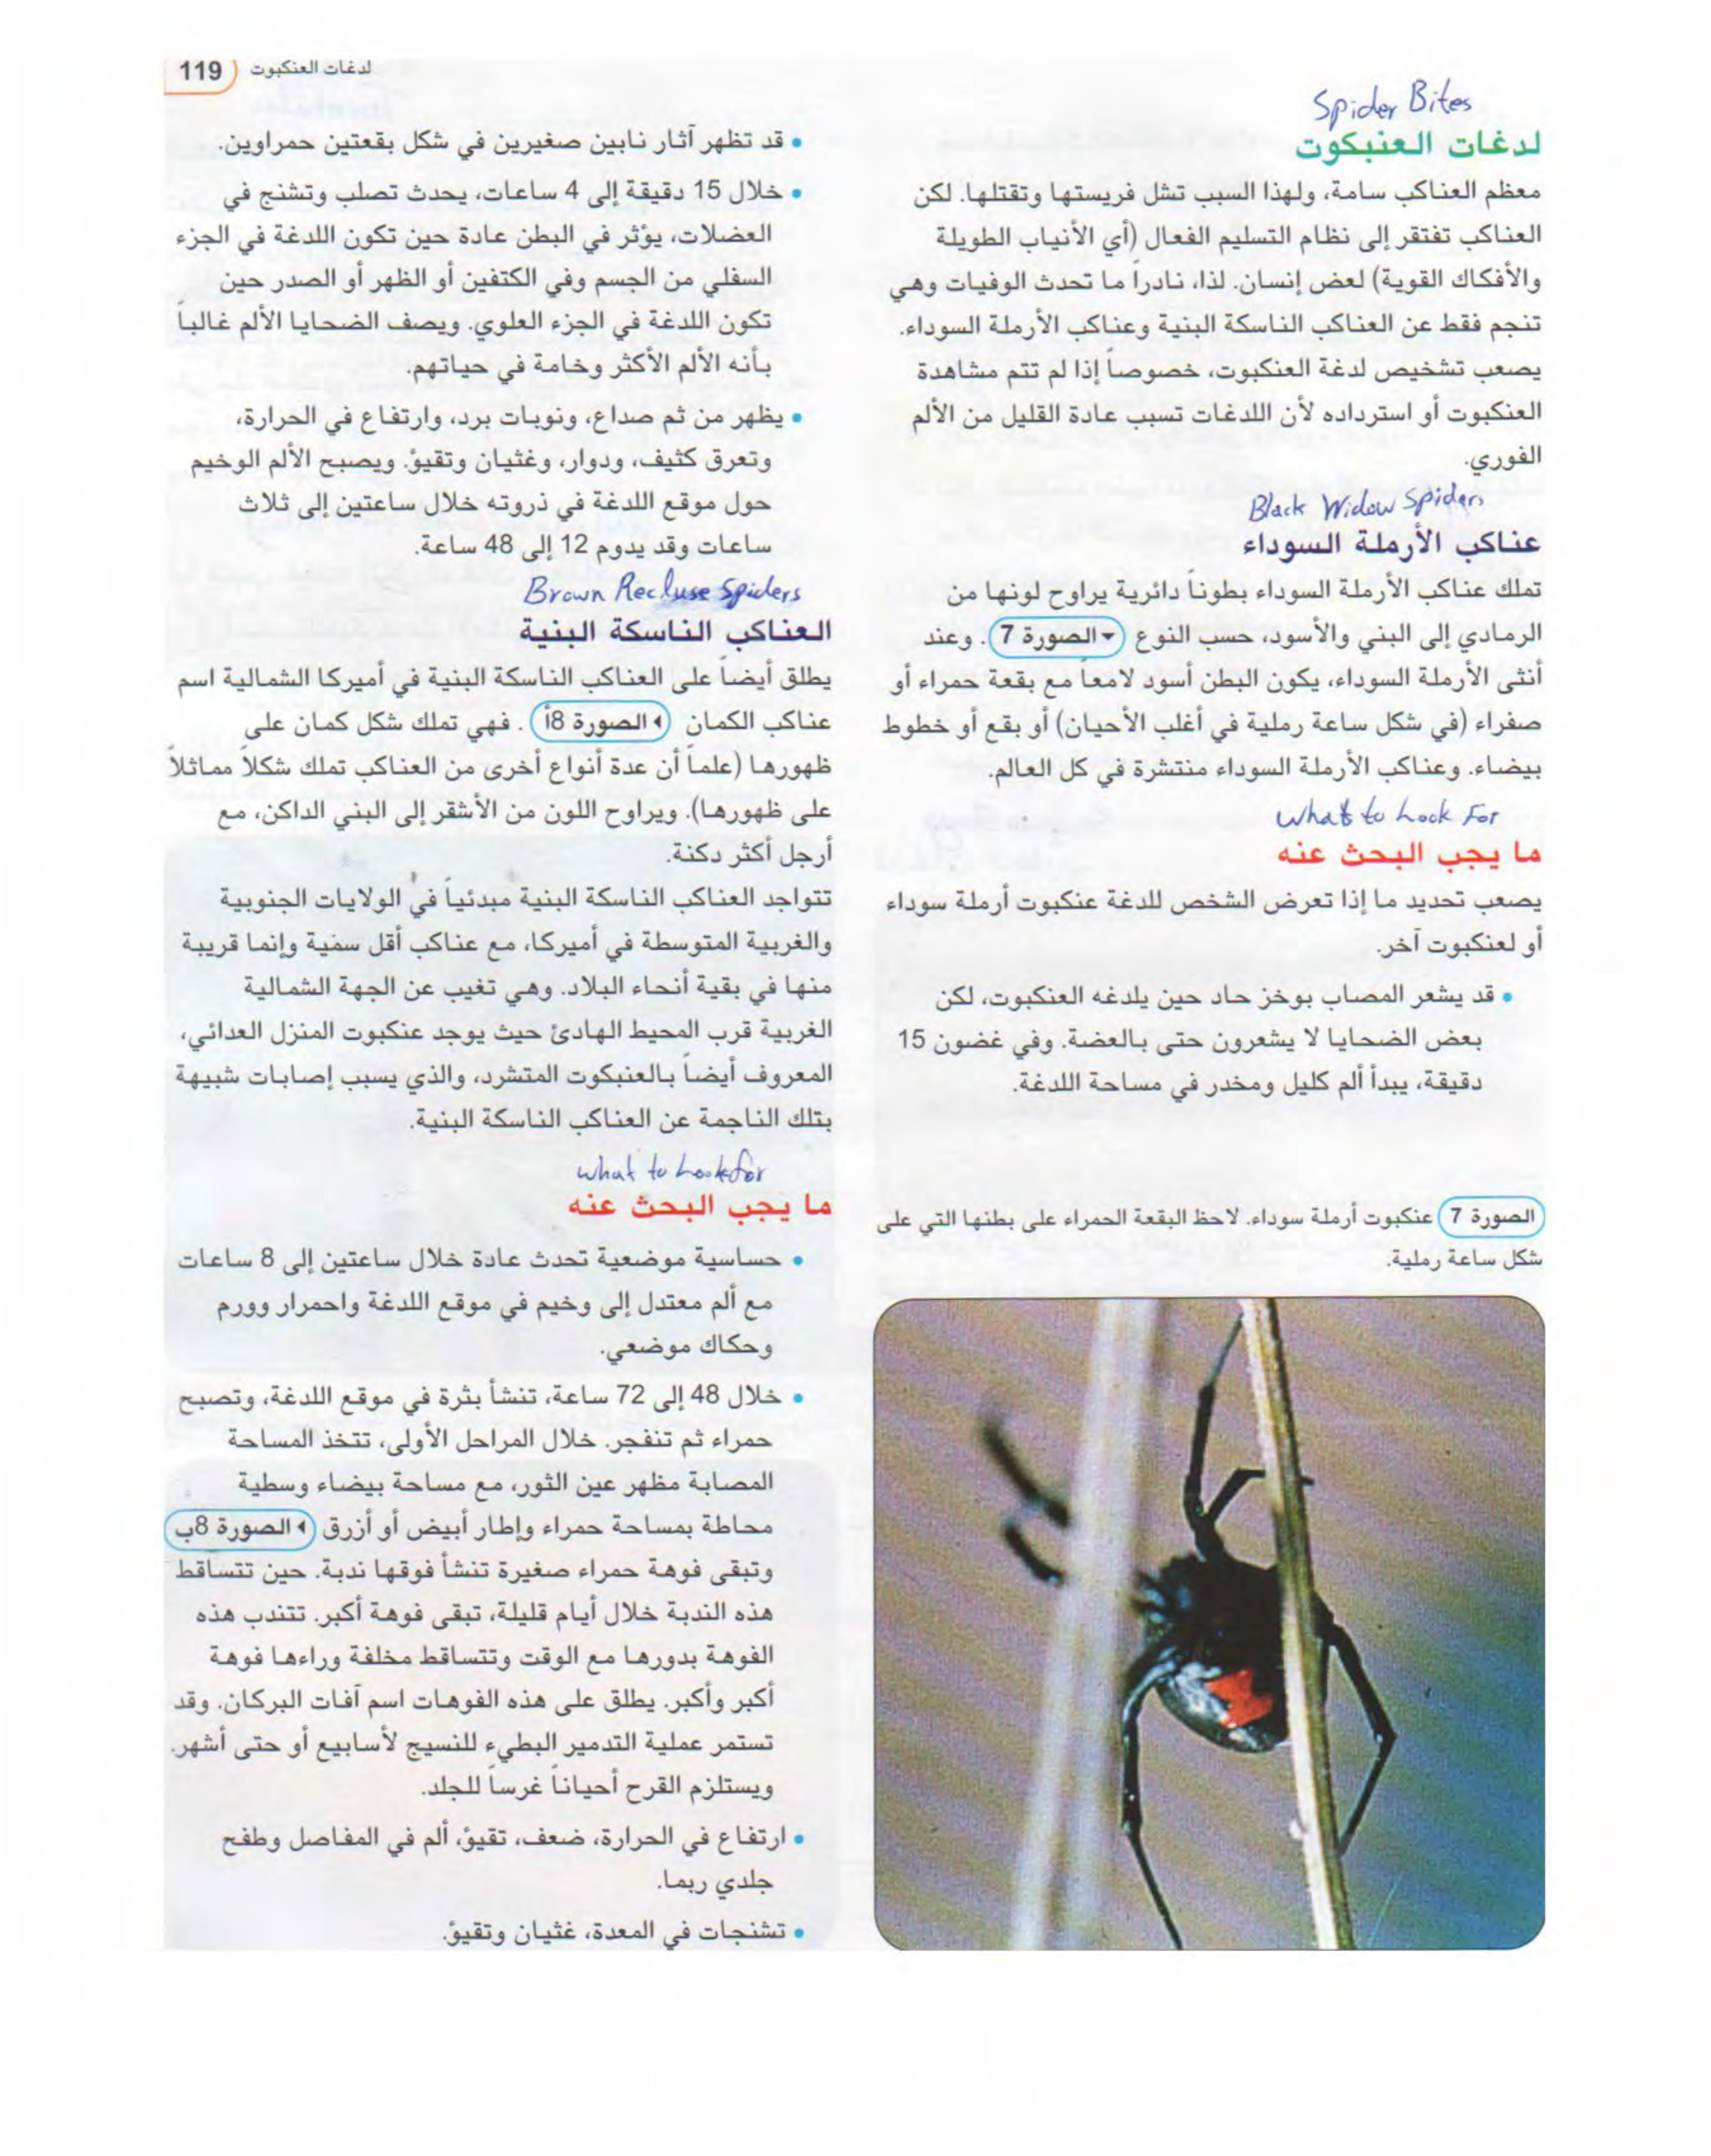 لدغات العنكبوت 119
Spider Bites
لدغات العنبكوت
معظم العناكب سامة، ولهذا السبب تشل فريستها وتقتلها. لكن
العناكب تفتقر إلى نظام التسليم الفعال (أي الأنياب الطويلة
والأفكاك القوية) لعض إنسان. لذا، نادراً ما تحدث الوفيات وهي
تنجم فقط عن العناكب الناسكة البنية وعناكب الأرملة السوداء.
يصعب تشخيص لدغة العنكبوت، خصوصاً إذا لم تتم مشاهدة
العنكبوت أو استرداده لأن اللدغات تسبب عادة القليل من الألم
الفوري.
Black Widow Spiders
عناكب الأرملة السوداء
تملك عناكب الأرملة السوداء بطوناً دائرية يراوح لونها من
الرمادي إلى البني والأسود، حسب النوع الصورة 7. وعند
أنثى الأرملة السوداء، يكون البطن أسود لامعاً مع بقعة حمراء أو
صفراء (في شكل ساعة رملية في أغلب الأحيان) أو بقع أو خطوط
بيضاء. وعناكب الأرملة السوداء منتشرة في كل العالم.
What to Look For
ما يجب البحث عنه
يصعب تحديد ما إذا تعرض الشخص للدغة عنكبوت أرملة سوداء
أو لعنكبوت آخر.
• قد يشعر المصاب بوخز حاد حين يلدغه العنكبوت، لكن
بعض الضحايا لا يشعرون حتى بالعضة. وفي غضون 15
دقيقة، يبدأ ألم كليل ومخدر في مساحة اللدغة.
الصورة 7 عنكبوت أرملة سوداء. لاحظ البقعة الحمراء على بطنها التي على
شكل ساعة رملية.
• قد تظهر آثار نابين صغيرين في شكل بقعتين حمراوين.
• خلال 15 دقيقة إلى 4 ساعات، يحدث تصلب وتشنج في
العضلات، يؤثر في البطن عادة حين تكون اللدغة في الجزء
السفلي من الجسم وفي الكتفين أو الظهر أو الصدر حين
تكون اللدغة في الجزء العلوي. ويصف الضحايا الألم غالباً
بأنه الألم الأكثر وخامة في حياتهم.
• يظهر من ثم صداع، ونوبات برد، وارتفاع في الحرارة،
وتعرق كثيف، ودوار، وغثيان وتقيؤ. ويصبح الألم الوخيم
حول موقع اللدغة في ذروته خلال ساعتين إلى ثلاث
ساعات وقد يدوم 12 إلى 48 ساعة.
Brown Recluse Spiders
العناكب الناسكة البنية
يطلق أيضاً على العناكب الناسكة البنية في أميركا الشمالية اسم
عناكب الكمان الصورة 8أ. فهي تملك شكل كمان على
ظهورها (علماً أن عدة أنواع أخرى من العناكب تملك شكلاً مماثلاً
على ظهورها). ويراوح اللون من الأشقر إلى البني الداكن، مع
أرجل أكثر دكنة.
تتواجد العناكب الناسكة البنية مبدئياً في الولايات الجنوبية
والغربية المتوسطة في أميركا، مع عناكب أقل سمية وإنما قريبة
منها في بقية أنحاء البلاد. وهي تغيب عن الجهة الشمالية
الغربية قرب المحيط الهادئ حيث يوجد عنكبوت المنزل العدائي،
المعروف أيضاً بالعنبكوت المتشرد، والذي يسبب إصابات شبيهة
بتلك الناجمة عن العناكب الناسكة البنية.
What to Look for
ما يجب البحث عنه
• حساسية موضعية تحدث عادة خلال ساعتين إلى 8 ساعات
مع ألم معتدل إلى وخيم في موقع اللدغة واحمرار وورم
وحكاك موضعي.
• خلال 48 إلى 72 ساعة، تنشأ بثرة في موقع اللدغة، وتصبح
حمراء ثم تنفجر. خلال المراحل الأولى، تتخذ المساحة
المصابة مظهر عين الثور، مع مساحة بيضاء وسطية
محاطة بمساحة حمراء وإطار أبيض أو أزرق الصورة 8ب
وتبقى فوهة حمراء صغيرة تنشأ فوقها ندبة. حين تتساقط
هذه الندبة خلال أيام قليلة، تبقى فوهة أكبر. تتندب هذه
الفوهة بدورها مع الوقت وتتساقط مخلفة وراءها فوهة
أكبر وأكبر. يطلق على هذه الفوهات اسم آفات البركان. وقد
تستمر عملية التدمير البطيء للنسيج لأسابيع أو حتى أشهر.
ويستلزم القرح أحياناً غرساً للجلد.
• ارتفاع في الحرارة، ضعف، تقيؤ، ألم في المفاصل وطفح
جلدي ربما.
• تشنجات في المعدة، غثيان وتقيؤ.